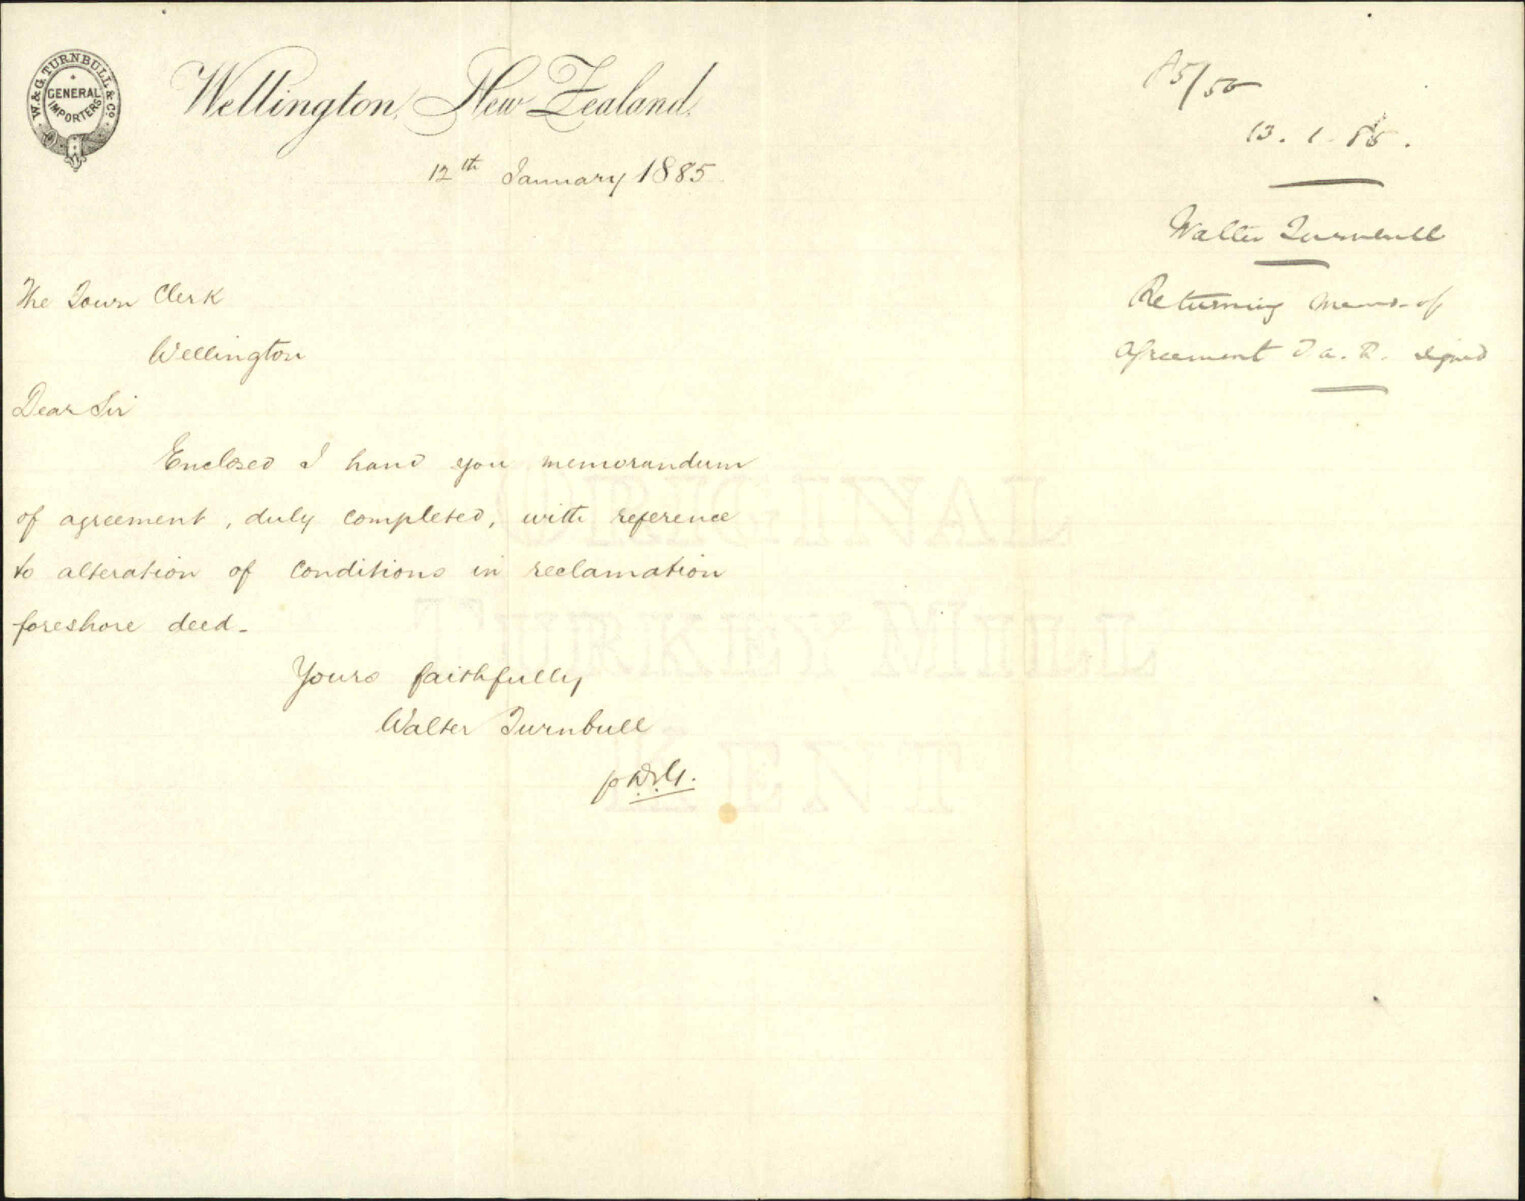 W. & G. TURNBULL & CO
GENERAL
IMPORTERS
Wellington, New Zealand.
12th January 1885
The Town Clerk
Wellington
Dear Sir
Enclosed I hand you memorandum
of agreement, duly completed, with reference
to alteration of conditions in reclamation
foreshore deed.
Yours faithfully
Walter Turnbull
85/50
13.1.85.
Walter Turnbull
Returning memo of
Agreement signed
ORIGINAL
TURKEY MILL
KENT